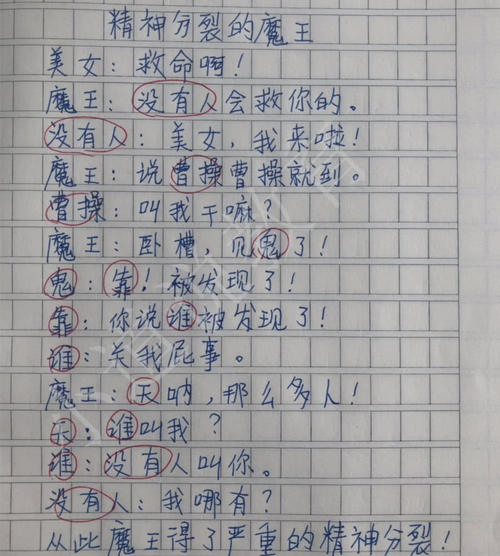 精神分裂的魔王
美女：救命啊！
魔王：没有人会救你的。
没有人：美女，我来啦！
魔王：说曹操曹操就到。
曹操：叫我干嘛？
魔王：卧槽，见鬼了！
鬼：靠！被发现了！
靠：你说谁被发现了！
谁：关我屁事。
魔王：天呐，那么多人！
天：谁叫我？
谁：没有人叫你。
没有人：我哪有？
从此魔王得了严重的精神分裂！